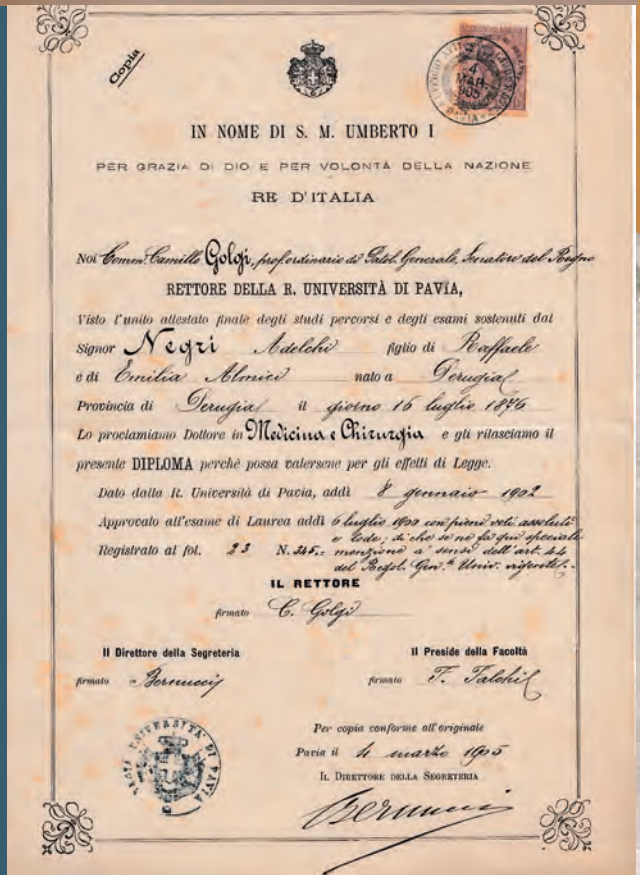 Copia
4
MAR.
905
PAVIA
IN NOME DI S. M. UMBERTO I
PER GRAZIA DI DIO E PER VOLONTÀ DELLA NAZIONE
RE D'ITALIA
Noi Comm. Camillo Golgi, prof. ordinario di Patol. Generale, Senatore del Regno
RETTORE DELLA R. UNIVERSITÀ DI PAVIA,
Visto l'unito attestato finale degli studi percorsi e degli esami sostenuti dal
Signor Negri Adelchi figlio di Raffaele
e di Emilia Almici nato a Perugia
Provincia di Perugia il giorno 16 luglio 1876
Lo proclamiamo Dottore in Medicina e Chirurgia e gli rilasciamo il
presente DIPLOMA perchè possa valersene per gli effetti di Legge.
Dato dalla R. Università di Pavia, addì 8 gennaio 1902
Approvato all'esame di Laurea addì 6 luglio 1900 con pieni voti assoluti
e lode; di che se ne fa qui speciale
Registrato al fol. 23 N. 345.. menzione a' sensi dell'art. 44
del Regol. Gen.e Univ. riferito.
IL RETTORE
firmato C. Golgi
Il Direttore della Segreteria
firmato Bernucci
Il Preside della Facoltà
firmato
Per copia conforme all'originale
Pavia il 4 marzo 1905
IL DIRETTORE DELLA SEGRETERIA
Bernucci
REGIA UNIVERSITÀ DI PAVIA